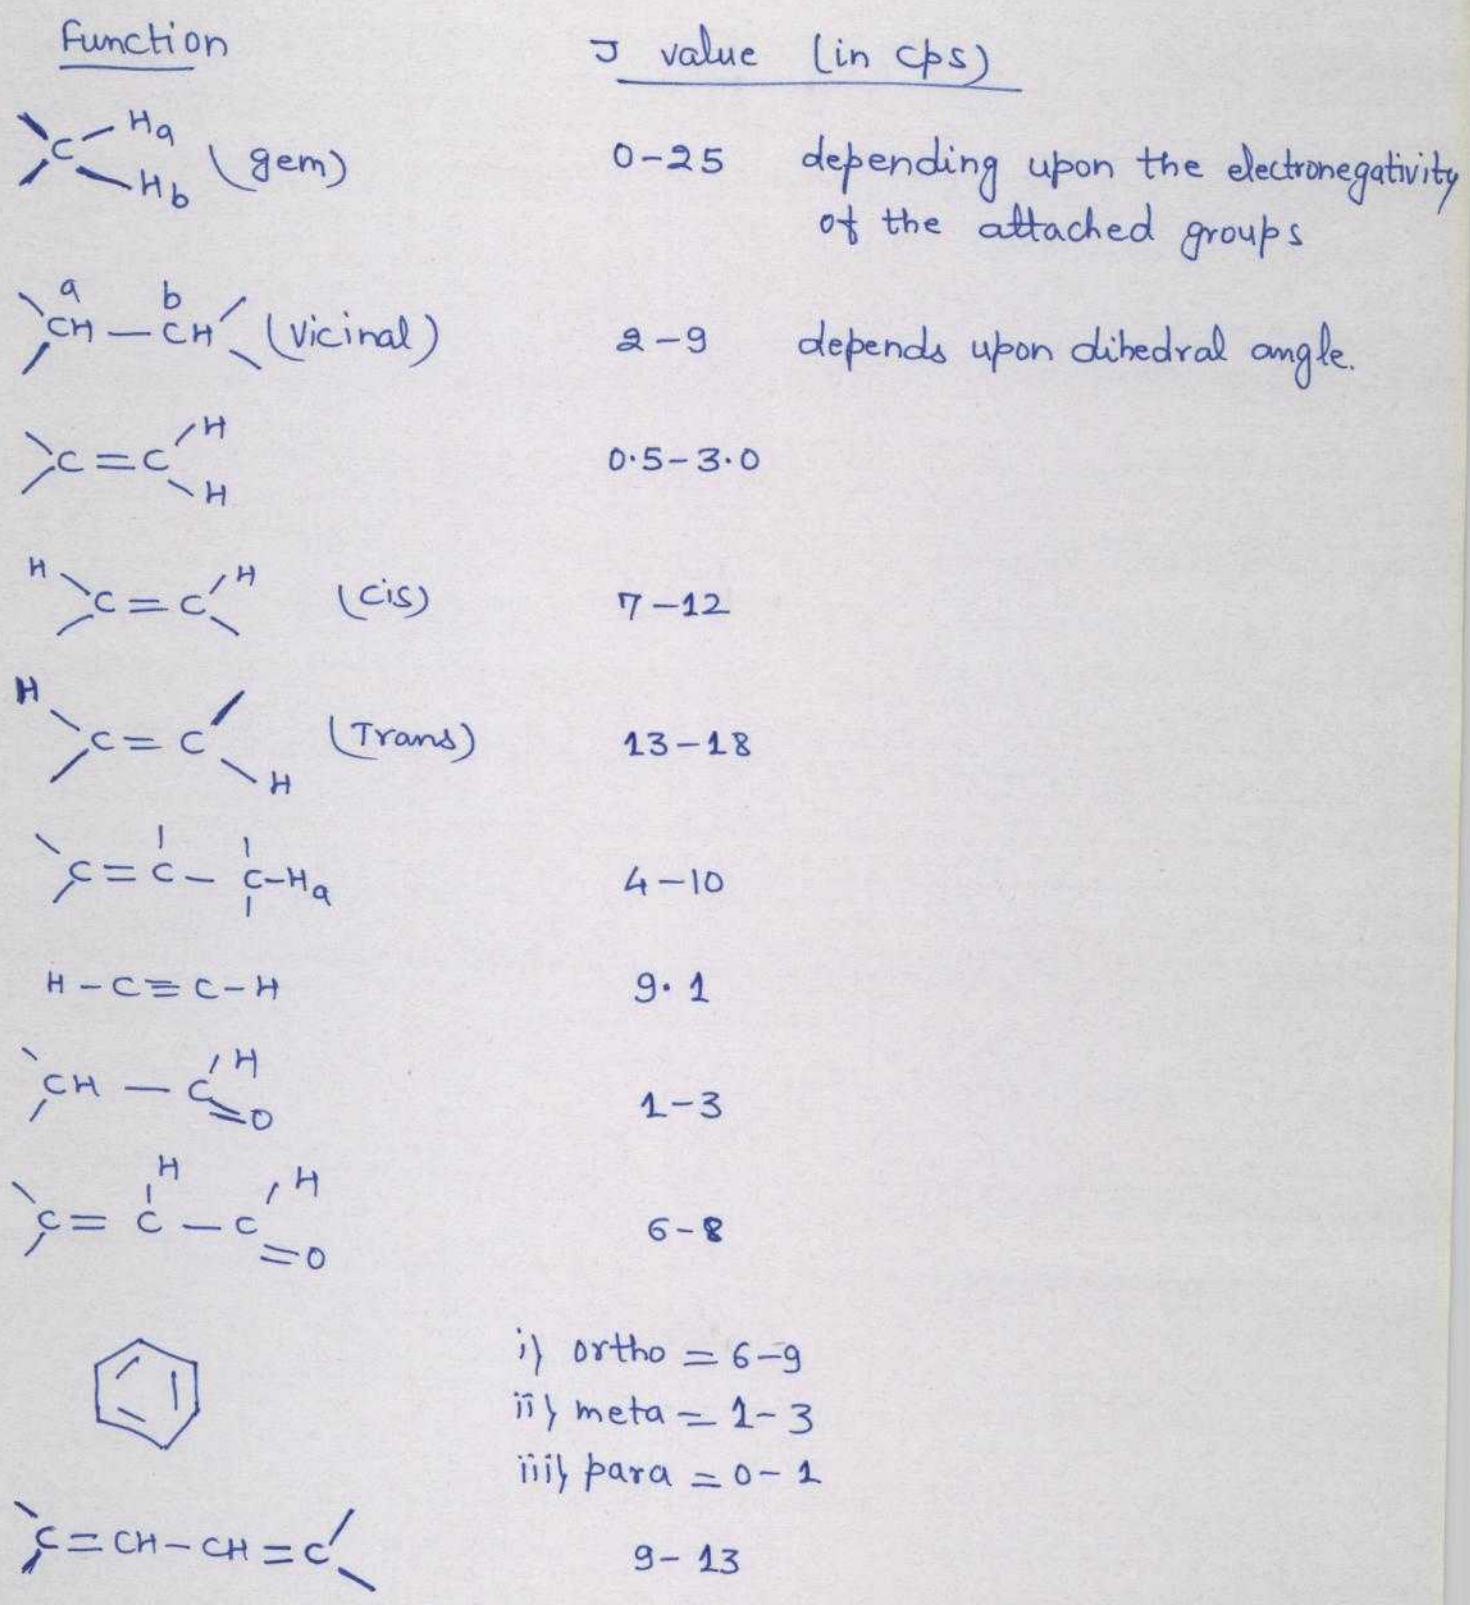 Function J value (in cps)
C-Ha
-Hb (gem) 0-25 depending upon the electronegativity
of the attached groups
a b
CH — CH (Vicinal) 2-9 depends upon dihedral angle.
H
C=C 0.5-3.0
H
H H
C=C (cis) 7-12
H
C=C (Trans) 13-18
H
C=C-C-Ha 4-10
H-C≡C-H 9.1
H
CH — C=O 1-3
H H
C=C-C=O 6-8
i) ortho = 6-9
ii) meta = 1-3
iii) para = 0-1
C=CH-CH=C 9-13